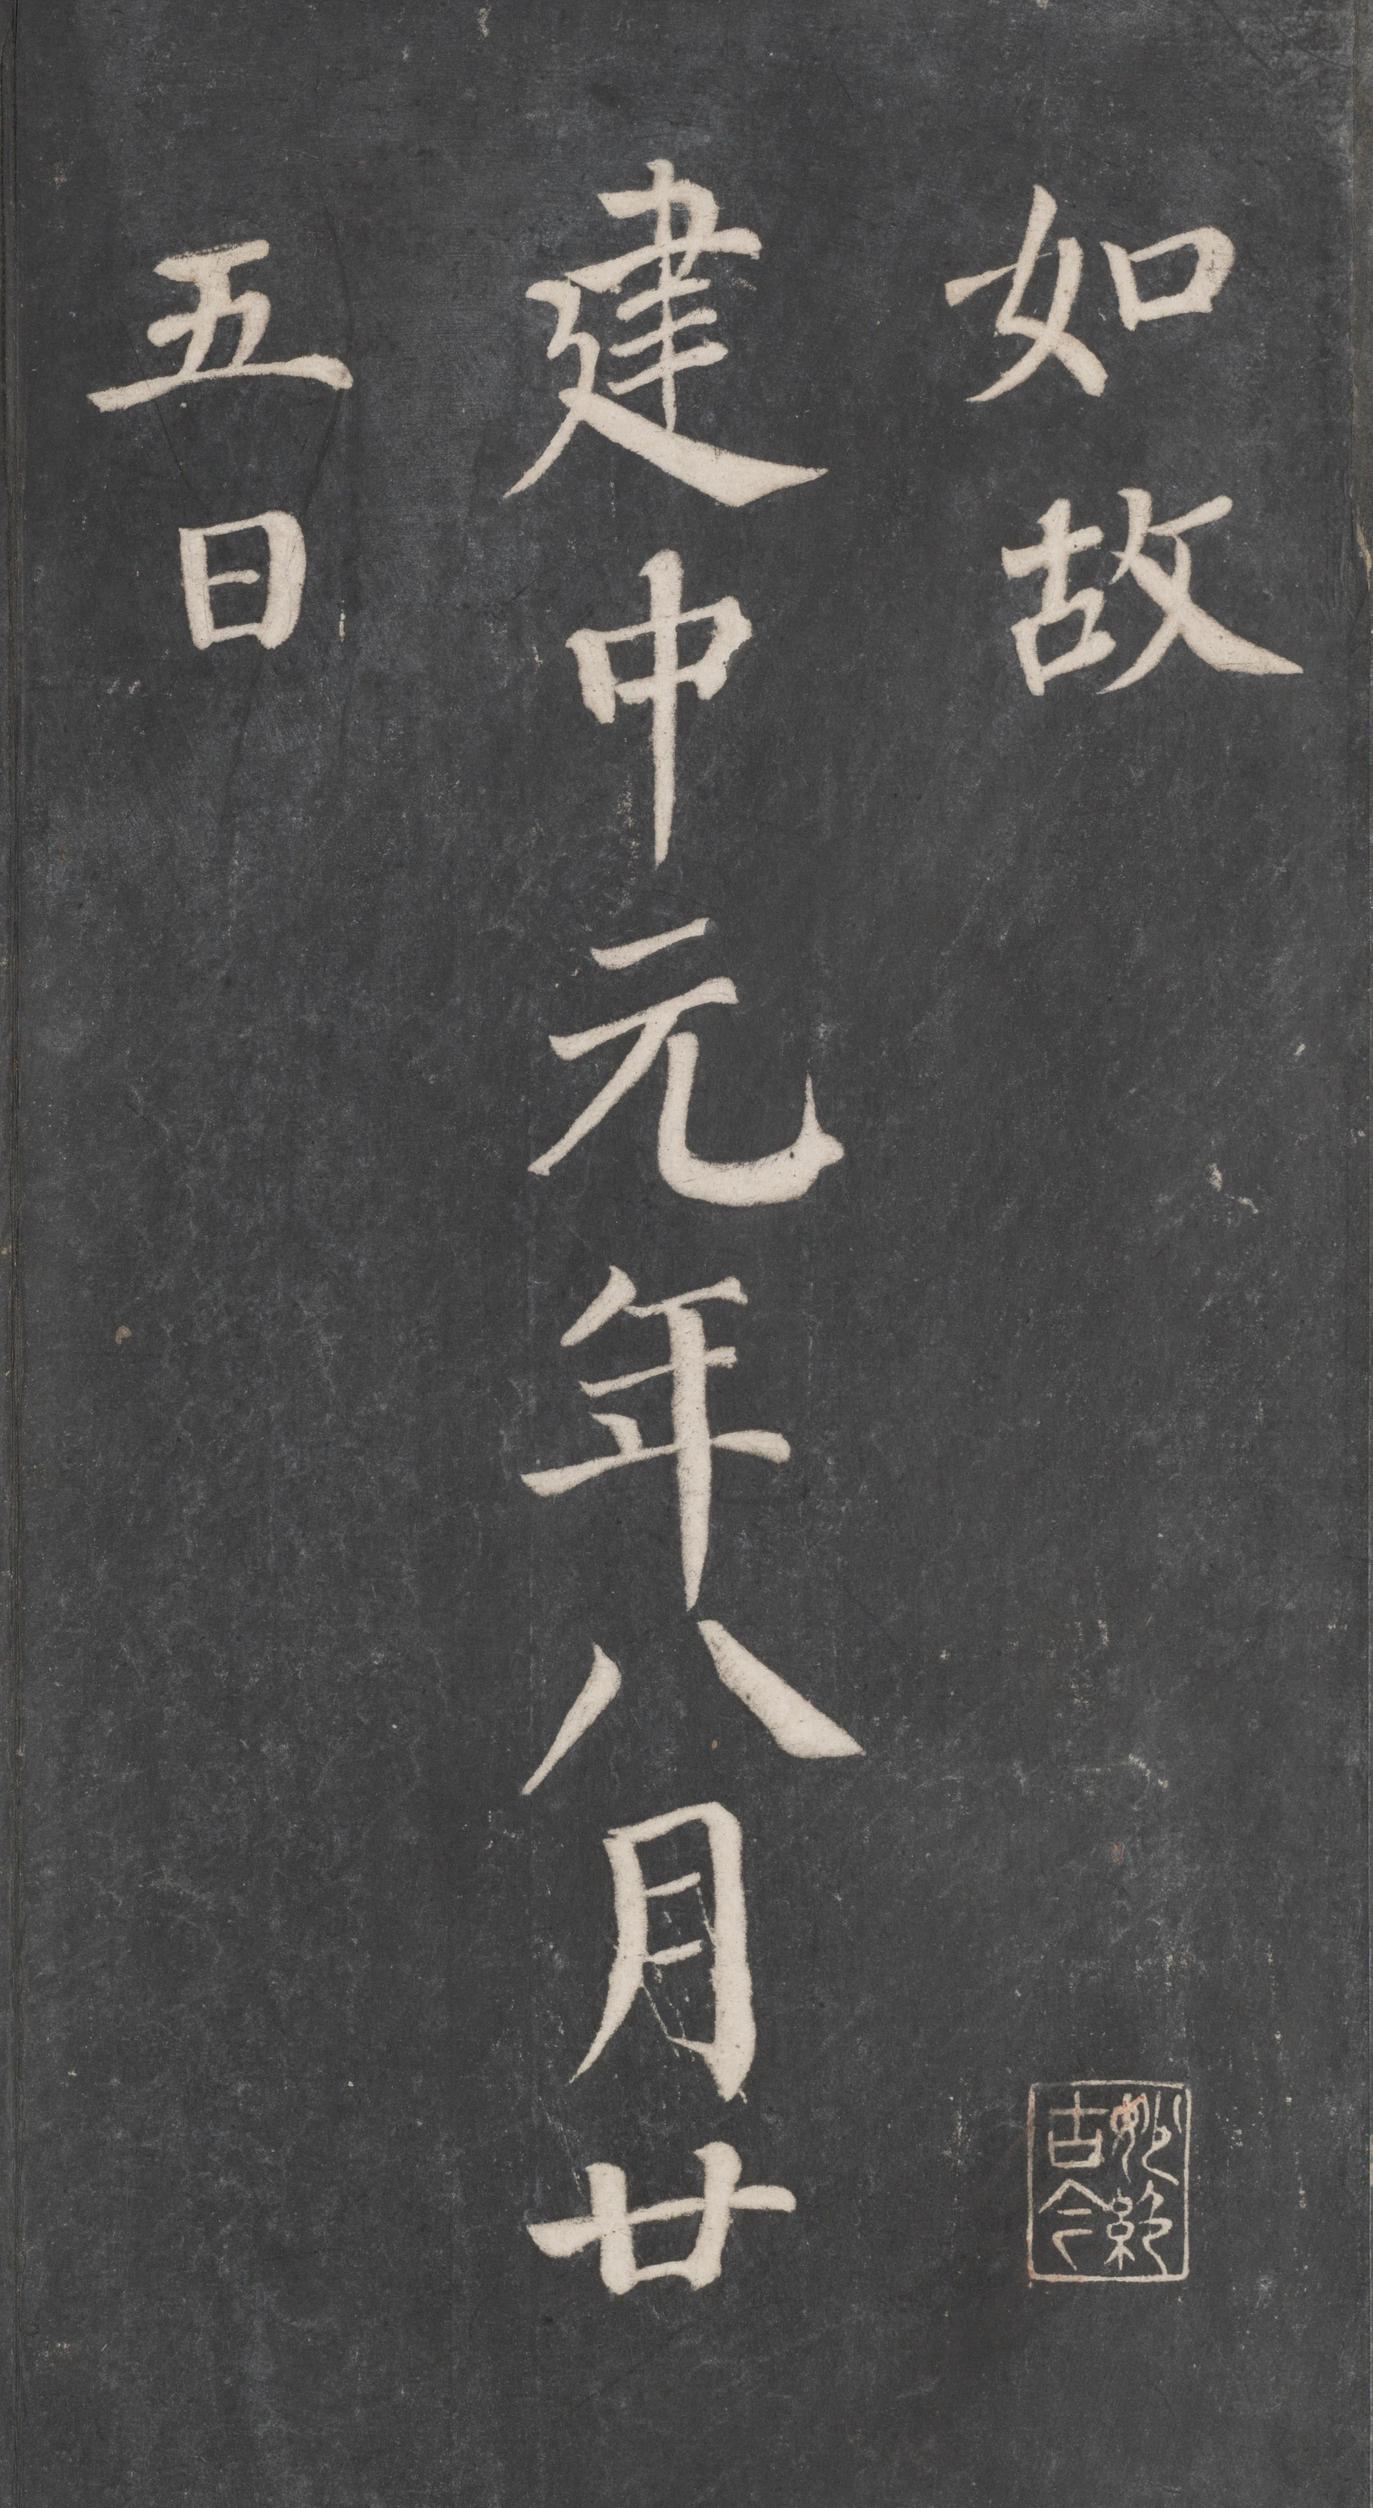 如故
建中元年八月廿
五日
妙絶
古今